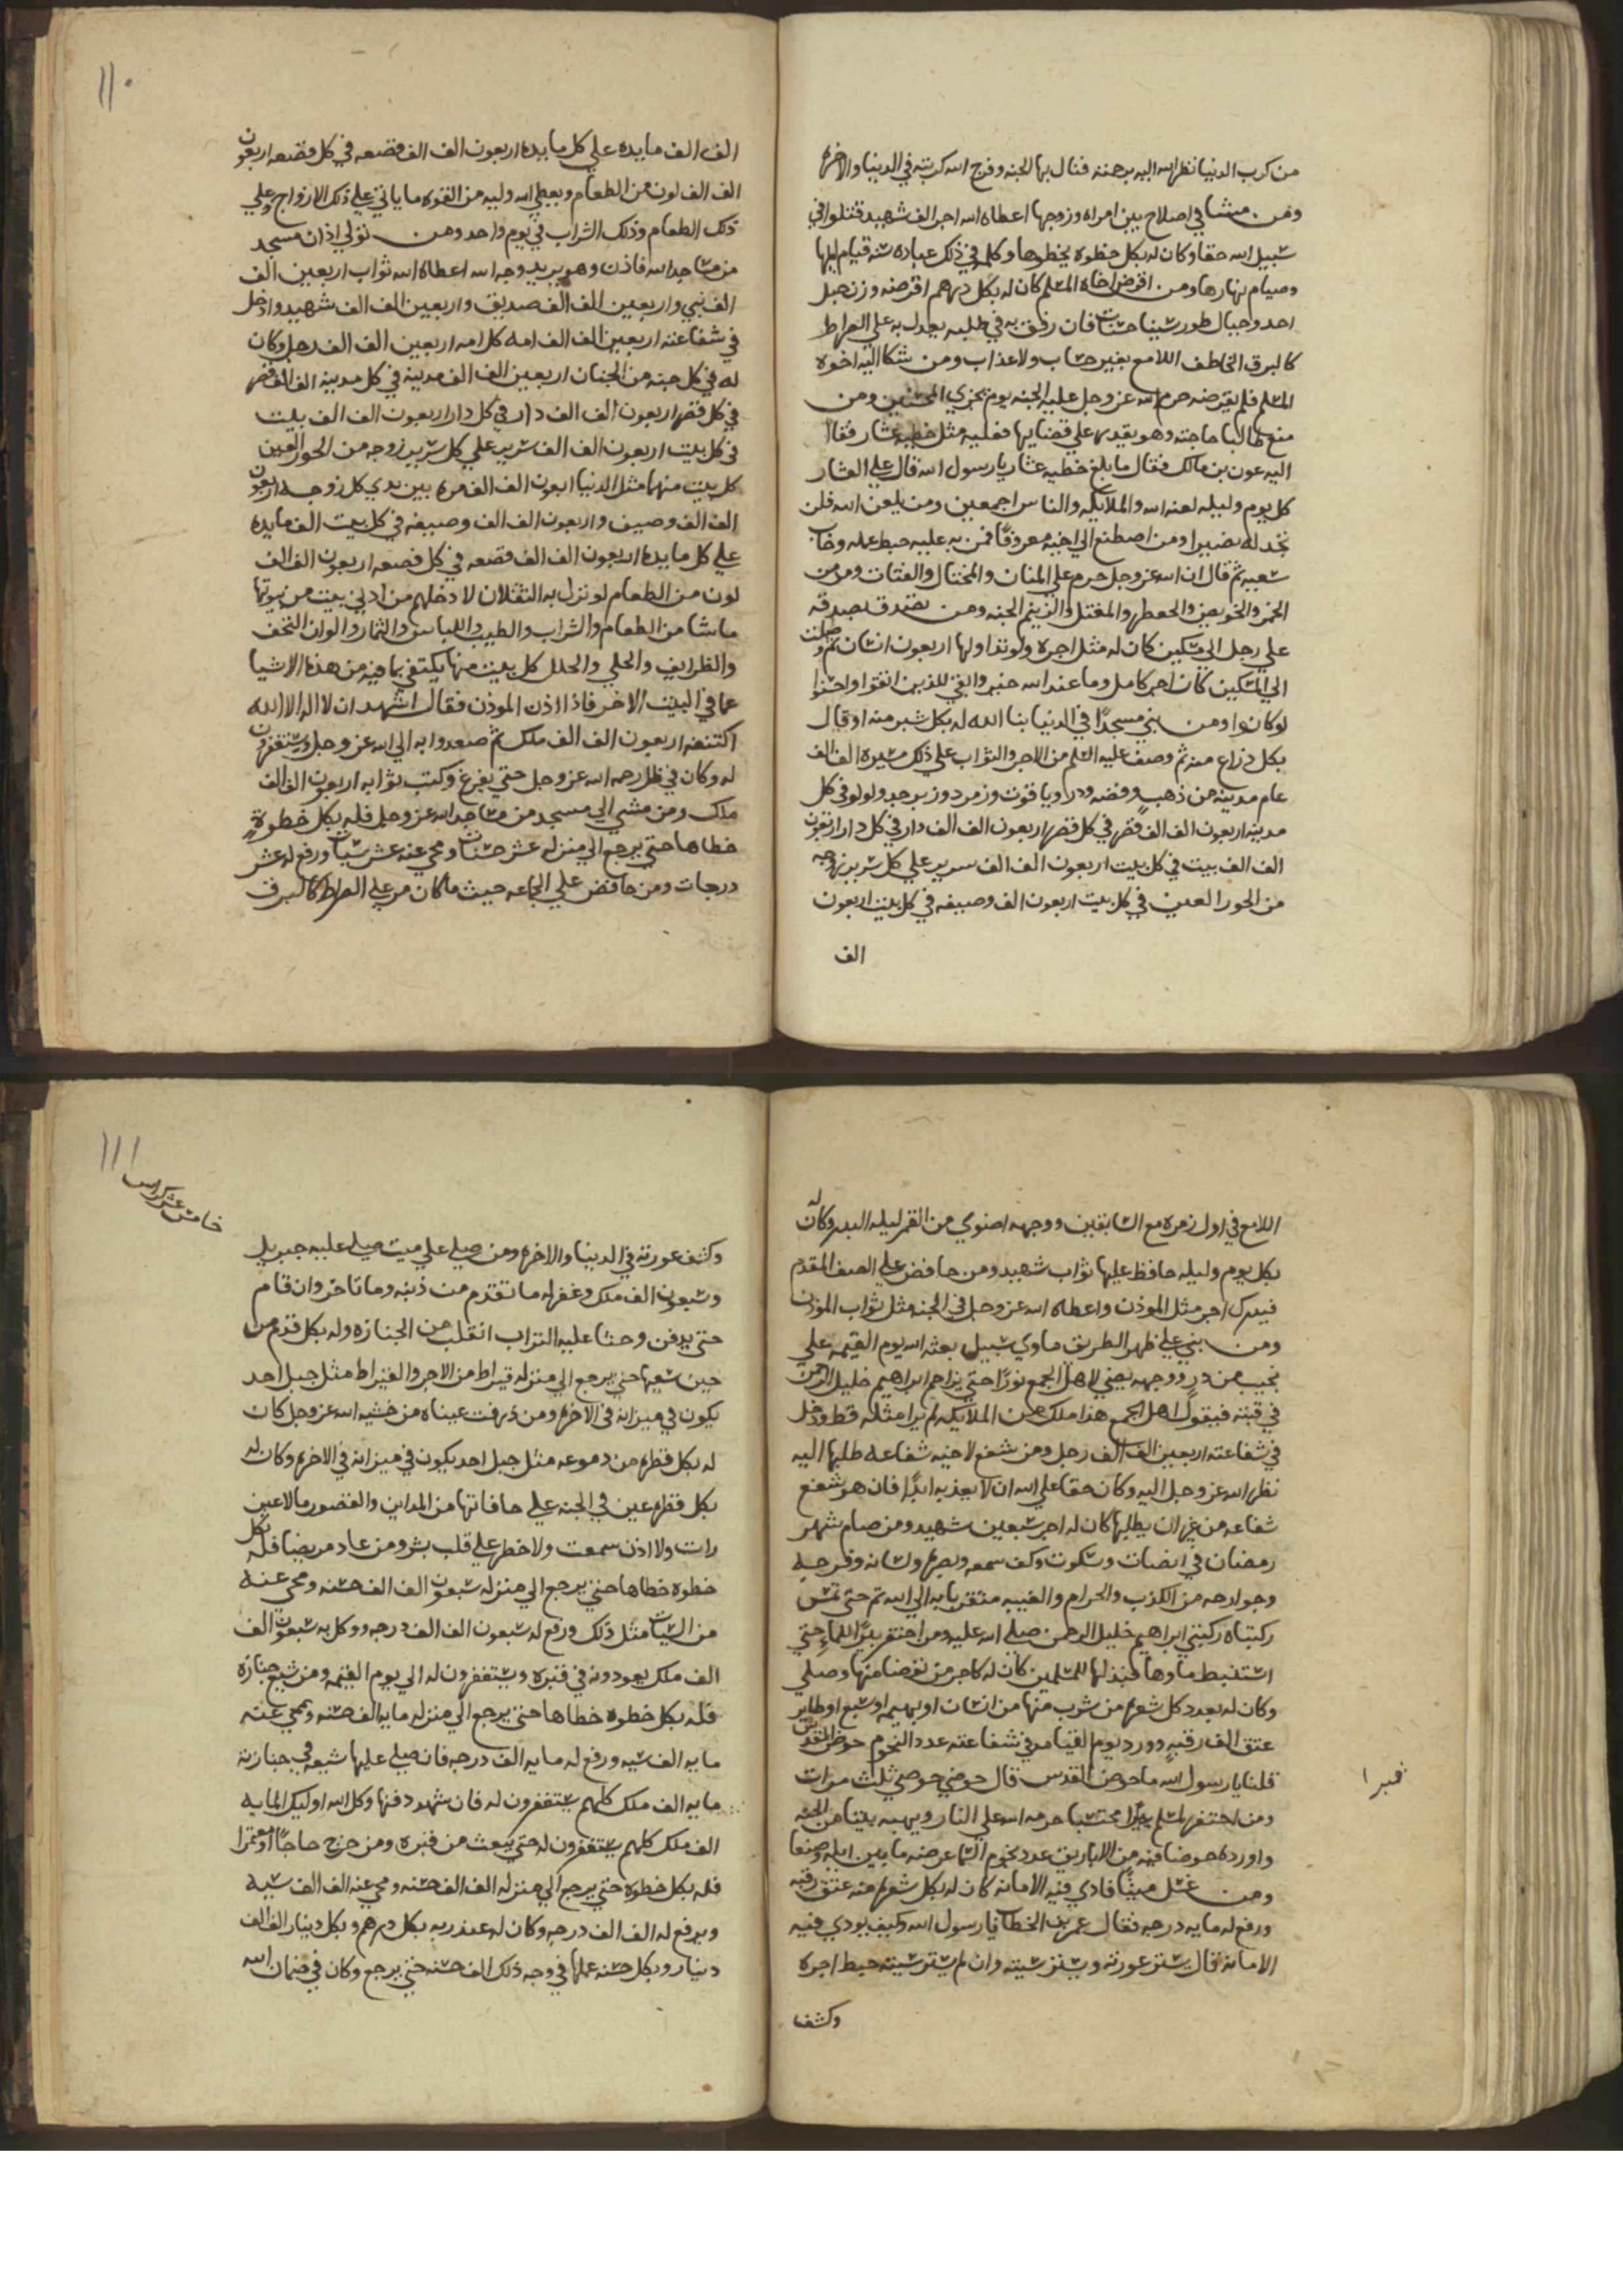 من كرب الدنيا نظر الله اليه برحمة فنال بها الجنه وفرج الله كربته في الدنيا والاخره
ومن مشا في اصلاح بين امراه وزوجها اعطاه الله اجر الف شهيد قتلوا في
سبيل الله حقا وكان له بكل خطوه يخطوها وكلمه في ذلك عباده سنه قيام ليلها
وصيام نهارها ومن اقرض اخاه المسلم كان له بكل درهم اقرضه وزن جبل
احد وجبال طور سينا حسنات فان رفق به في طلبه يعدل به علي الصراط
كالبرق الخاطف اللامع بغير حساب ولا عذاب ومن شكا اليه اخوه
المسلم فلم يقرضه حرم الله عز وجل عليه الجنه يوم يجزي المحسنين ومن
منع طالبا حاجته وهو يقدر علي قضايها فعليه مثل خطيه عشار فقال
اليه عون بن مالك فقال ما بلغ خطيه عشار يا رسول الله قال علي العشار
كل يوم وليله لعنه الله والملايكه والناس اجمعين ومن يلعن الله فلن
تجد له نصيرا ومن اصطنع الي اخيه معروفا فمن به عليه حبط عمله وخاب
سعيه ثم قال ان الله عز وجل حرم علي المنان والمختال والفتات ومدمن
الخمر والخويص والجعظر والمغتل والزنيم الجنه ومن تصدق بصدقه
علي رجل الي مسكين كان له مثل اجره ولو تداولها اربعون انسان ثم وصلت
الي المسكين كان اجر كامل وما عند الله خير وابقي للذين اتقوا واحسنوا
لو كانوا ومن بني مسجدا في الدنيا بنا الله له بكل شبر منه او قال
بكل ذراع منه ثم وصف عليه السلم من الاجر والثواب علي ذلك مسيره الف الف
عام مدينه من ذهب وفضه ودر وياقوت وزمرد وزبرجد ولولو في كل
مدينه اربعون الف الف قصر في كل قصر اربعون الف الف دار في كل دار اربعون
الف الف بيت في كل بيت اربعون الف الف سرير علي كل سرير زوجه
من الحور العين في كل بيت اربعون الف وصيفه في كل بيت اربعون
الف
١١٠
الف الف مايده علي كل مايده اربعون الف الف قصعه في كل قصعه اربعون
الف الف لون من الطعام ويعطي الله وليه من القوه ما ياتي علي ذلك الازواج وعلي
ذلك الطعام وذلك الشراب في يوم واحد ومن تولي اذان مسجد
من مساجد الله فاذن وهو يريد وجه الله اعطاه الله ثواب اربعين الف
الف نبي واربعين الف الف صديق واربعين الف الف شهيد وادخل
في شفاعته اربعين الف الف امه كل امه اربعين الف الف رجل وكان
له في كل جنه من الجنان اربعين الف الف مدينه في كل مدينه الف الف قصر
في كل قصر اربعون الف الف دار في كل دار اربعون الف الف بيت
في كل بيت اربعون الف الف سرير علي كل سرير زوجه من الحور العين
كل بيت منها مثل الدنيا اربعون الف الف مره بين يدي كل زوجه اربعون
الف الف وصيف واربعون الف الف وصيفه في كل بيت الف مايده
علي كل مايده اربعون الف الف قصعه في كل قصعه اربعون الف الف
لون من الطعام لو نزل به الثقلان لادخلهم من ادني بيت من بيوتها
ماشا من الطعام والشراب والطيب واللباس والثمار والوان التحف
والظرايف والحلي والحلل كل بيت منها يكتفي بما فيه من هذه الاشيا
عما في البيت الاخر فاذا اذن الموذن فقال اشهد ان لا اله الا الله
اكتنفه اربعون الف الف ملك ثم صعدوا به الي الله عز وجل ويستغفرون
له وكان في ظل رحمه الله عز وجل حتي يفرغ وكتب ثوابه اربعون الف الف
ملك ومن مشي الي مسجد من مساجد الله عز وجل فله بكل خطوة
خطاها حتي يرجع الي منزله عشر حسنات ومحي عنه عشر سيات ورفع له عشر
درجات ومن حافض علي الجماعه حيث ما كان مر علي الصراط كالبرق
اللامع في اول زمره مع السابقين ووجهه اضوي من القمر ليله البدر وكان له
بكل يوم وليله حافظ عليها ثواب شهيد ومن حافض علي الصف المقدم
فيدرك اجر مثل الموذن واعطاه الله عز وجل في الجنه مثل ثواب الموذن
ومن بني علي ظهر الطريق ماوي سبيل بعثه الله يوم القيمه علي
نجيب من در ووجهه يضي لاهل الجمع نورا حتي يزاحم ابراهيم خليل الرحمن
في قبته فيقول اهل الجمع هذا ملك من الملايكه لم يرا مثله قط ودخل
في شفاعته اربعين الف الف رجل ومن شفع لاخيه شفاعه طلبها اليه
نظر الله عز وجل اليه وكان حقا علي الله ان لا يعذبه ابدا فان هو شفع
شفاعه من غير ان يطلبها كان له اجر سبعين شهيد ومن صام شهر
رمضان في انصات وسكوت وكف سمعه وبصره ولسانه وفرجه
وجوارحه من الكذب والحرام والغيبه متقربا به الي الله تم حتي تمس
ركبتاه ركبتي ابراهيم خليل الرحمن صلي الله عليه ومن احتفر بيرا للماء حتي
استنبط ماوها فبذلها للمسلمين كان له كاجر من توضا منها وصلي
وكان له بعدد كل شعره من شرب منها من انسان او بهيمه او سبع او طاير
عتق الف رقبه وورد يوم القيامه في شفاعته عدد النجوم حوض القدس
قلنا يا رسول الله ما حوض القدس قال حوضي حوضي ثلث مرات
ومن احتفر لمسلم قبرا محتسبا حرمه الله علي النار ويهبه بيتا من الجنه
واورده حوضا فيه من الاباريق عدد نجوم السما عرضه ما بين ايله وصنعا
ومن غسل ميتا فادي فيه الامانه كان له بكل شعره منه عتق رقبه
ورفع له مايه درجه فقال عمر بن الخطاب يا رسول الله وكيف يودي فيه
الامانه قال يستر عورته ويستر شيته وان لم يستر شيته حبط اجره
وكشف
قبرا
١١١
خامس عشر كراس
وكشف عورته في الدنيا والاخره ومن صلي علي ميت صلي عليه جبريل
وسبعون الف ملك وغفر له ما تقدم من ذنبه وما تاخر وان قام
حتي يدفن وحثا عليه التراب انقلب من الجنازه وله بكل قدم من
حين شيعها حتي يرجع الي منزله قيراط من الاجر والقيراط مثل جبل احد
يكون في ميزانه في الاخره ومن ذرفت عيناه من خشيه الله عز وجل كان
له بكل قطره من دموعه مثل جبل احد يكون في ميزانه في الاخره وكان له
بكل قطره عين في الجنه علي حافاتها من المداين والقصور ما لا عين
رات ولا اذن سمعت ولا خطر علي قلب بشر ومن عاد مريضا فله بكل
خطوه خطاها حتي يرجع الي منزله سبعون الف الف حسنه ومحي عنه
من السيات مثل ذلك ورفع له سبعون الف الف درجه ووكل به سبعون الف
الف ملك يعودونه في قبره ويستغفرون له الي يوم القيمه ومن شيع جنازه
فله بكل خطوه خطاها حتي يرجع الي منزله مايه الف حسنه ومحي عنه
مايه الف سيه ورفع له مايه الف درجه فان صلي عليها شيعه في جنازته
مايه الف ملك كلهم يستغفرون له فان شهد دفنها وكل الله اوليك المايه
الف ملك كلهم يستغفرون له حتي يبعث من قبره ومن خرج حاجا او معتمرا
فله بكل خطوه حتي يرجع الي منزله الف الف حسنه ومحي عنه الف الف سيه
ويرفع له الف الف درجه وكان له عند ربه بكل درهم وبكل دينار الف الف
دينار وبكل حسنه عملها في وجه ذلك الف حسنه حتي يرجع وكان في ضمان الله